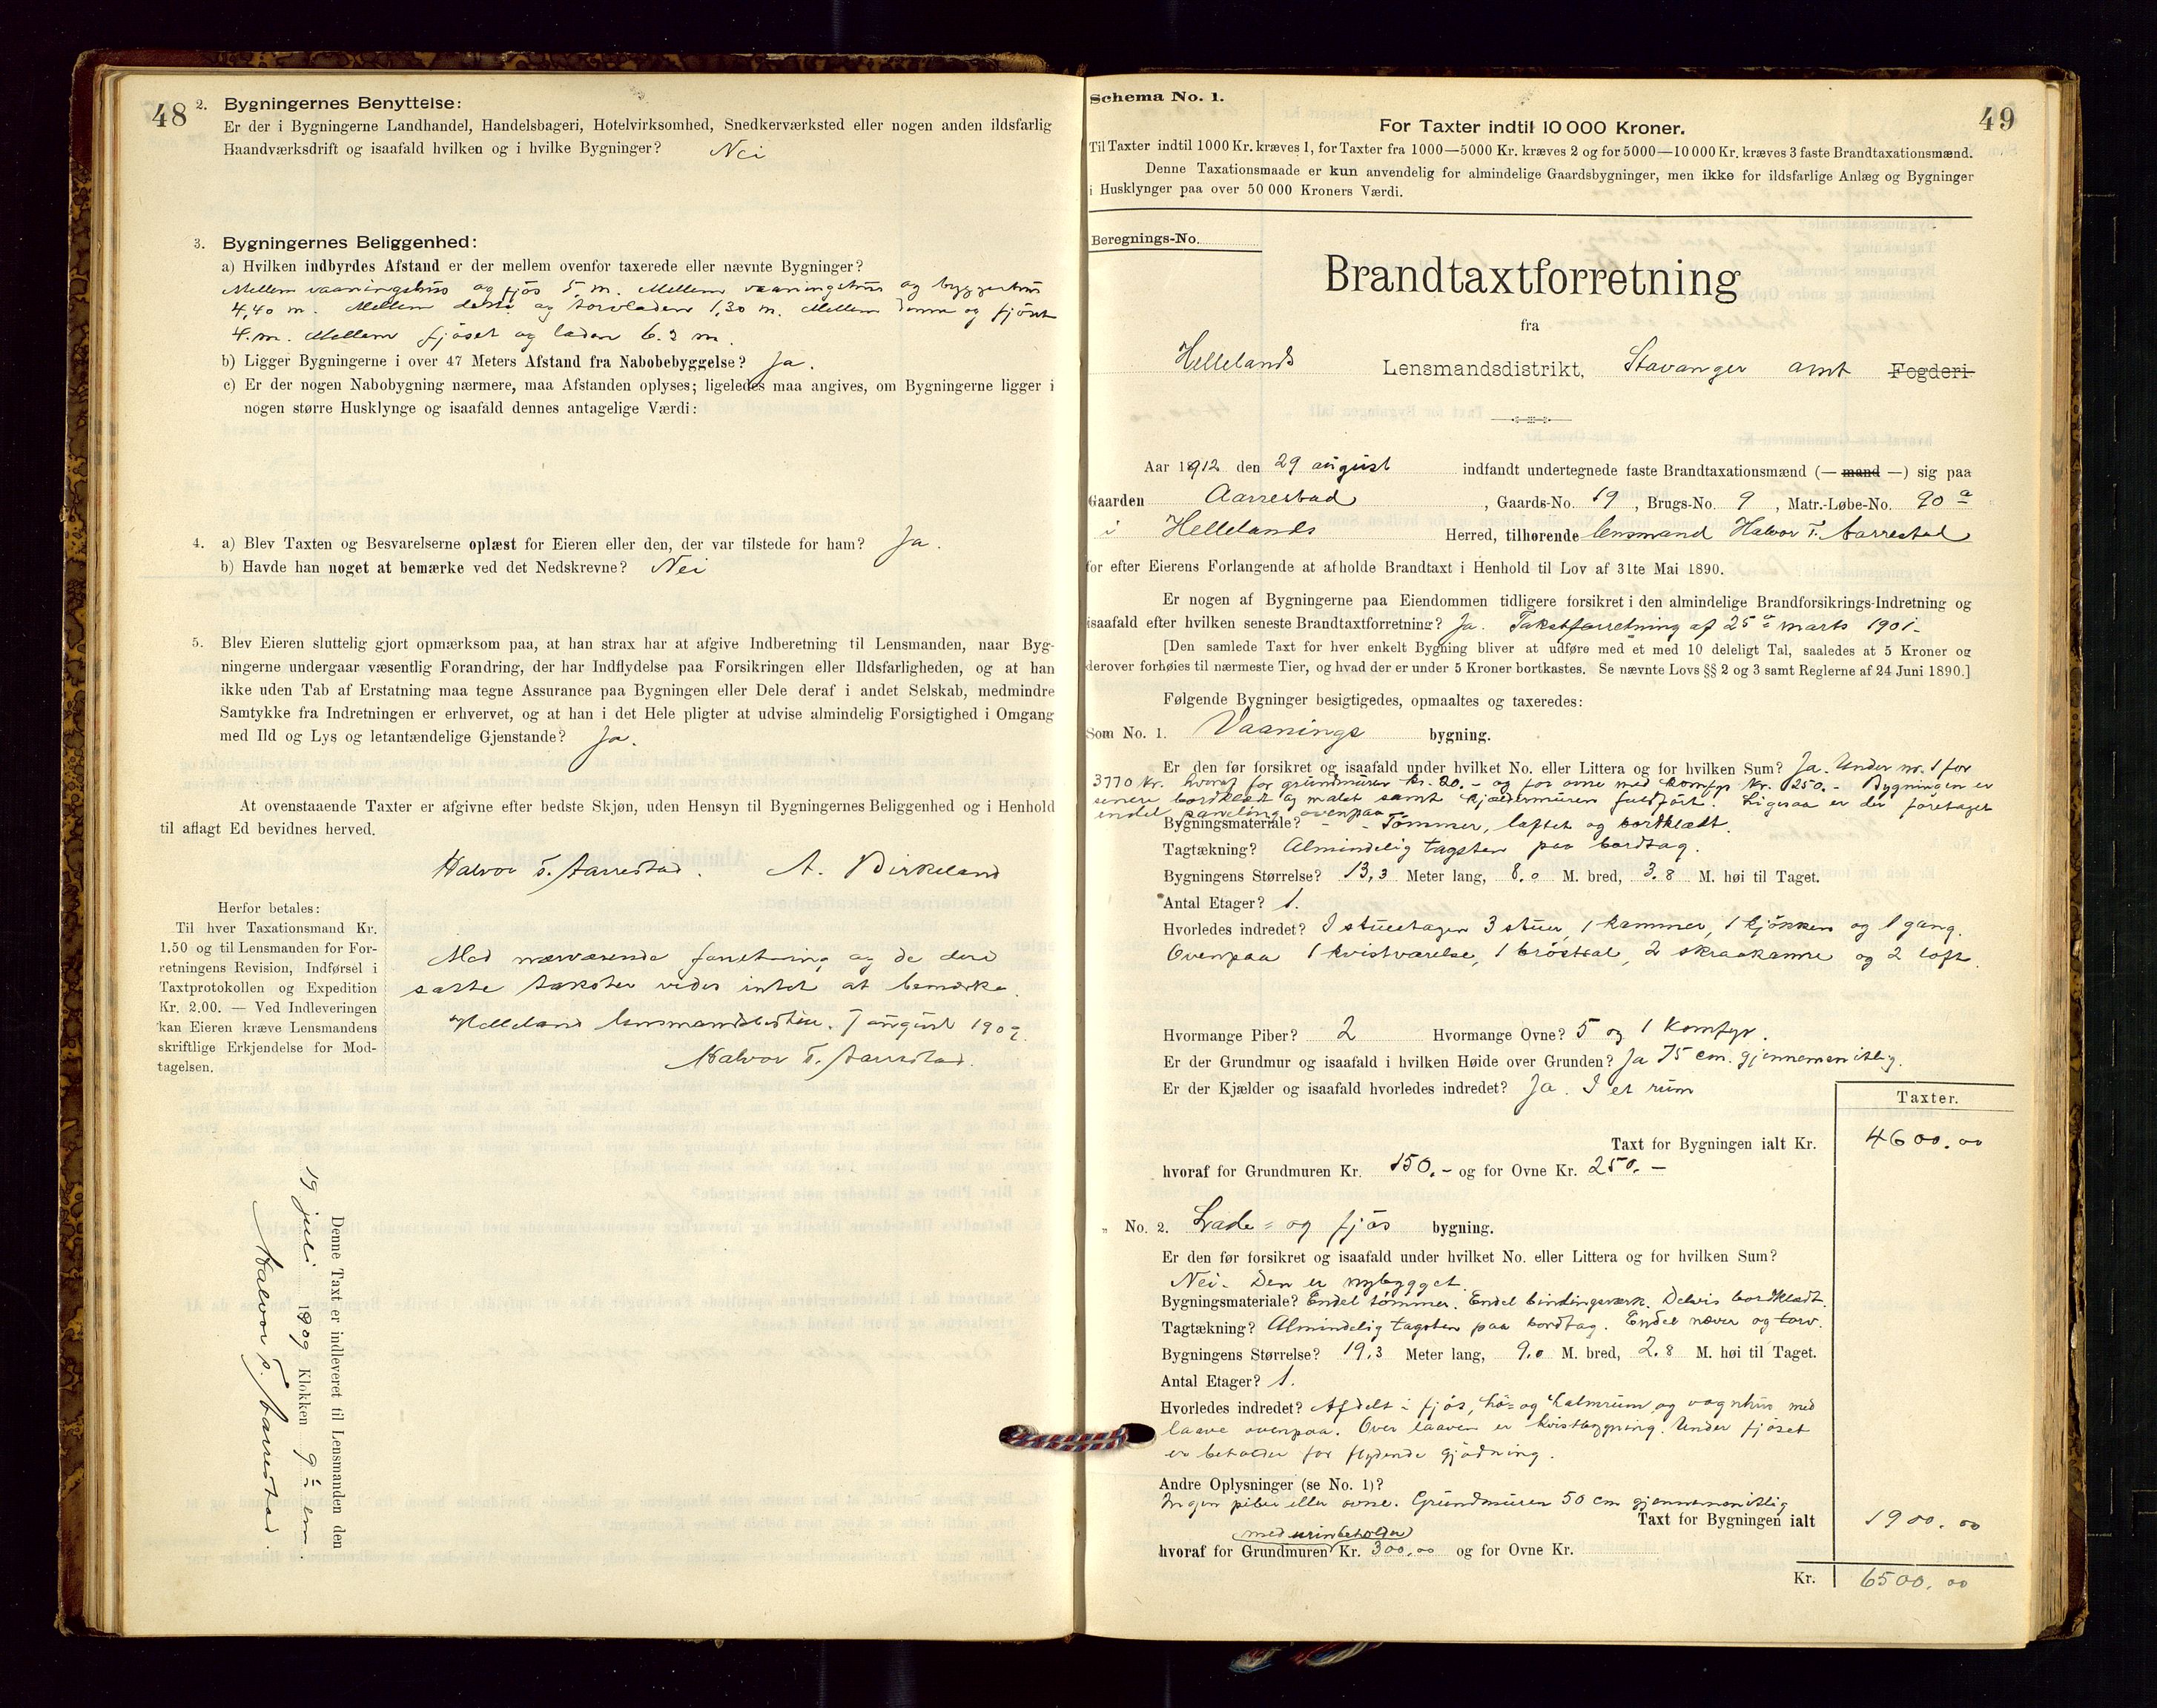 48
2. Bygningernes Benyttelse:
Er der i Bygningerne Landhandel, Handelsbageri, Hotelvirksomhed, Snedkerværksted eller nogen anden ildsfarlig
Haandværksdrift og isaafald hvilken og i hvilke Bygninger? Nei
3. Bygningernes Beliggenhed:
a) Hvilken indbyrdes Afstand er der mellem ovenfor taxerede eller nævnte Bygninger?
Mellem vaaningshus og fjös 5 m. Mellem vaaningshus og byggerhus
4,40 m. Mellem dette og torvladen 1,30 m. Mellem denne og fjöset
4. m. Mellem fjöset og laden 6.3 m.
b) Ligger Bygningerne i over 47 Meters Afstand fra Nabobebyggelse? Ja.
c) Er der nogen Nabobygning nærmere, maa Afstanden oplyses; ligeledes maa angives, om Bygningerne ligger i
nogen større Husklynge og isaafald dennes antagelige Værdi:
4. a) Blev Taxten og Besvarelserne oplæst for Eieren eller den, der var tilstede for ham? Ja.
b) Havde han noget at bemærke ved det Nedskrevne? Nei
5. Blev Eieren sluttelig gjort opmærksom paa, at han strax har at afgive Indberetning til Lensmanden, naar Byg-
ningerne undergaar væsentlig Forandring, der har Indflydelse paa Forsikringen eller Ildsfarligheden, og at han
ikke uden Tab af Erstatning maa tegne Assurance paa Bygningen eller Dele deraf i andet Selskab, medmindre
Samtykke fra Indretningen er erhvervet, og at han i det Hele pligter at udvise almindelig Forsigtighed i Omgang
med Ild og Lys og letantændelige Gjenstande? Ja.
At ovenstaaende Taxter er afgivne efter bedste Skjøn, uden Hensyn til Bygningernes Beliggenhed og i Henhold
til aflagt Ed bevidnes herved.
Halvor T. Aarrestad. A. Birkeland
Herfor betales:
Til hver Taxationsmand Kr.
1.50 og til Lensmanden for For-
retningens Revision, Indførsel i
Taxtprotokollen og Expedition
Kr. 2.00. — Ved Indleveringen
kan Eieren kræve Lensmandens
skriftlige Erkjendelse for Mod-
tagelsen.
Med nærværende forretning og de deri
satte takster vides intet at bemærke.
Helleland lensmandsbestill. 7 august 1909.
Halvor T. Aarrestad.
Denne Taxt er indleveret til Lensmanden den
19 juli 1909 Klokken 9 em.
Halvor T. Aarrestad.
49
Schema No. 1.
For Taxter indtil 10 000 Kroner.
Til Taxter indtil 1000 Kr. kræves 1, for Taxter fra 1000—5000 Kr. kræves 2 og for 5000—10 000 Kr. kræves 3 faste Brandtaxationsmænd.
Denne Taxationsmaade er kun anvendelig for almindelige Gaardsbygninger, men ikke for ildsfarlige Anlæg og Bygninger
i Husklynger paa over 50 000 Kroners Værdi.
Beregnings-No.
Brandtaxtforretning
fra
Hellelands Lensmandsdistrikt, Stavanger amt Fogderi.
Aar 1912 den 29 august indfandt undertegnede faste Brandtaxationsmænd (— mand —) sig paa
Gaarden Aarrestad, Gaards-No. 19, Brugs-No. 9, Matr.-Løbe-No. 90 a
i Hellelands Herred, tilhørende lensmand Halvor T. Aarrestad
for efter Eierens Forlangende at afholde Brandtaxt i Henhold til Lov af 31te Mai 1890.
Er nogen af Bygningerne paa Eiendommen tidligere forsikret i den almindelige Brandforsikrings-Indretning og
isaafald efter hvilken seneste Brandtaxtforretning? Ja. Takstforretning af 25 marts 1901.
[Den samlede Taxt for hver enkelt Bygning bliver at udføre med et med 10 deleligt Tal, saaledes at 5 Kroner og
derover forhøies til nærmeste Tier, og hvad der er under 5 Kroner bortkastes. Se nævnte Lovs §§ 2 og 3 samt Reglerne af 24 Juni 1890.]
Følgende Bygninger besigtigedes, opmaaltes og taxeredes:
Som No. 1. Vaanings bygning.
Er den før forsikret og isaafald under hvilket No. eller Littera og for hvilken Sum? Ja. Under nr. 1 for
3770 kr. hvoraf for grundmuren kr. 20.- og for ovne med komfyr kr. 250.- Bygningen er
senere bordklædt og malet samt kjældermuren fuldført. Ligesaa er der foretaget
endel paneling ovenpaa
Bygningsmateriale? Tömmer, laftet og bordklædt.
Tagtækning? Almindelig tagsten paa bordtag.
Bygningens Størrelse? 13,3 Meter lang, 8.0 M. bred, 3.8 M. høi til Taget.
Antal Etager? 1.
Hvorledes indredet? I stueetagen 3 stuer, 1 kammer, 1 kjökken og 1 gang.
Ovenpaa 1 kvistværelse, 1 bröstsal, 2 skraakamre og 2 loft.
Hvormange Piber? 2 Hvormange Ovne? 5 og 1 komfyr.
Er der Grundmur og isaafald i hvilken Høide over Grunden? Ja 75 cm. gjennemsnitlig.
Er der Kjælder og isaafald hvorledes indredet? Ja. I et rum
Taxter.
Taxt for Bygningen ialt Kr. 4600.00
hvoraf for Grundmuren Kr. 150.- og for Ovne Kr. 250.-
" No. 2. Lade- og fjös bygning.
Er den før forsikret og isaafald under hvilket No. eller Littera og for hvilken Sum?
Nei. Den er nybygget.
Bygningsmateriale? Endel tömmer. Endel bindingsverk. Delvis bordklædt.
Tagtækning? Almindelig tagsten paa bordtag. Endel næver og torv.
Bygningens Størrelse? 19,3 Meter lang, 9.0 M. bred, 2.8 M. høi til Taget.
Antal Etager? 1.
Hvorledes indredet? Afdelt i fjös, hö- og halmrum og vognhus med
laave ovenpaa. Over laaven er kvistbygning. Under fjöset
er beholder for flydende gjödning.
Andre Oplysninger (se No. 1)?
Ingen piber eller ovne. Grundmuren 50 cm gjennemsnitlig
Taxt for Bygningen ialt 1900.00
med urinbeholder
hvoraf for Grundmuren Kr. 300.00 og for Ovne Kr.
Kr. 6500.00